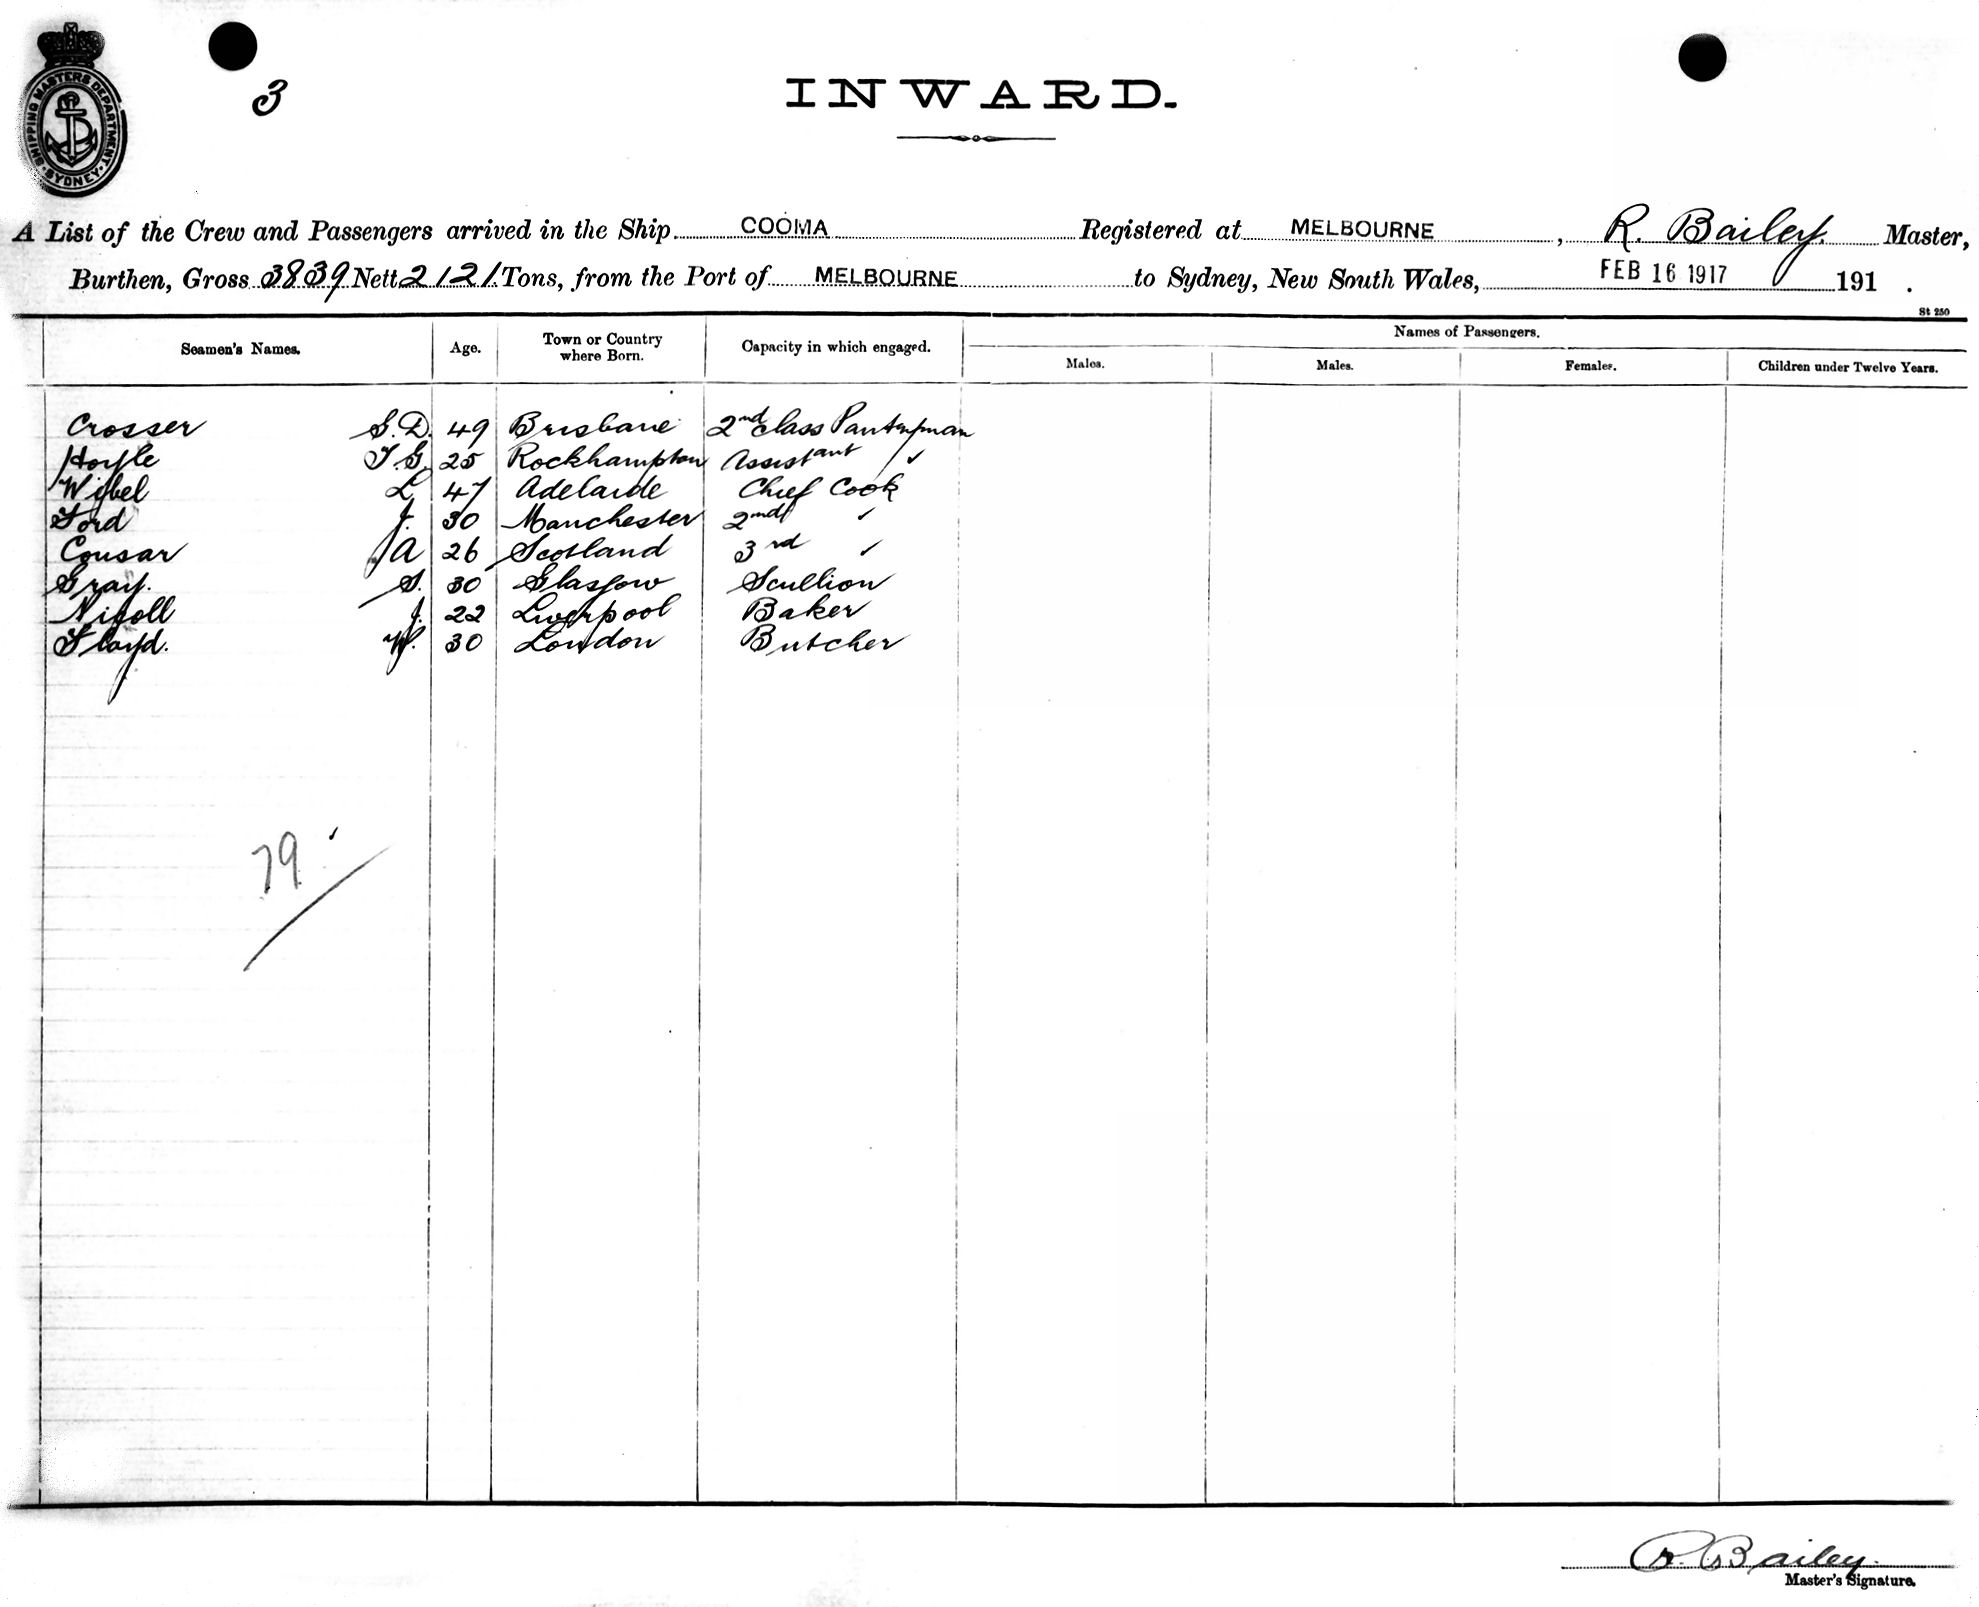 SHIPPING MASTERS DEPARTMENT
SYDNEY
3
INWARD.
A List of the Crew and Passengers arrived in the Ship COOMA Registered at MELBOURNE, R. Bailey. Master,
Burthen, Gross 3839 Nett 2121. Tons, from the Port of MELBOURNE to Sydney, New South Wales, FEB 16 1917 191 .
St 250
Seamen's Names. Age. Town or Country where Born. Capacity in which engaged. Names of Passengers.
Males. Males. Females. Children under Twelve Years.
Crosser S. D. 49 Brisbane 2nd Class Pantryman
Hoyle T. G. 25 Rockhampton Assistant ✓
Wibel L 47 Adelaide Chief Cook
Ford J. 30 Manchester 2nd ✓
Cousar J A 26 Scotland 3rd ✓
Gray. S. 30 Glasgow Scullion
Nicoll J. 22 Liverpool Baker
Floyd. W. 30 London Butcher
79 ✓
R. Bailey.
Master's Signature.